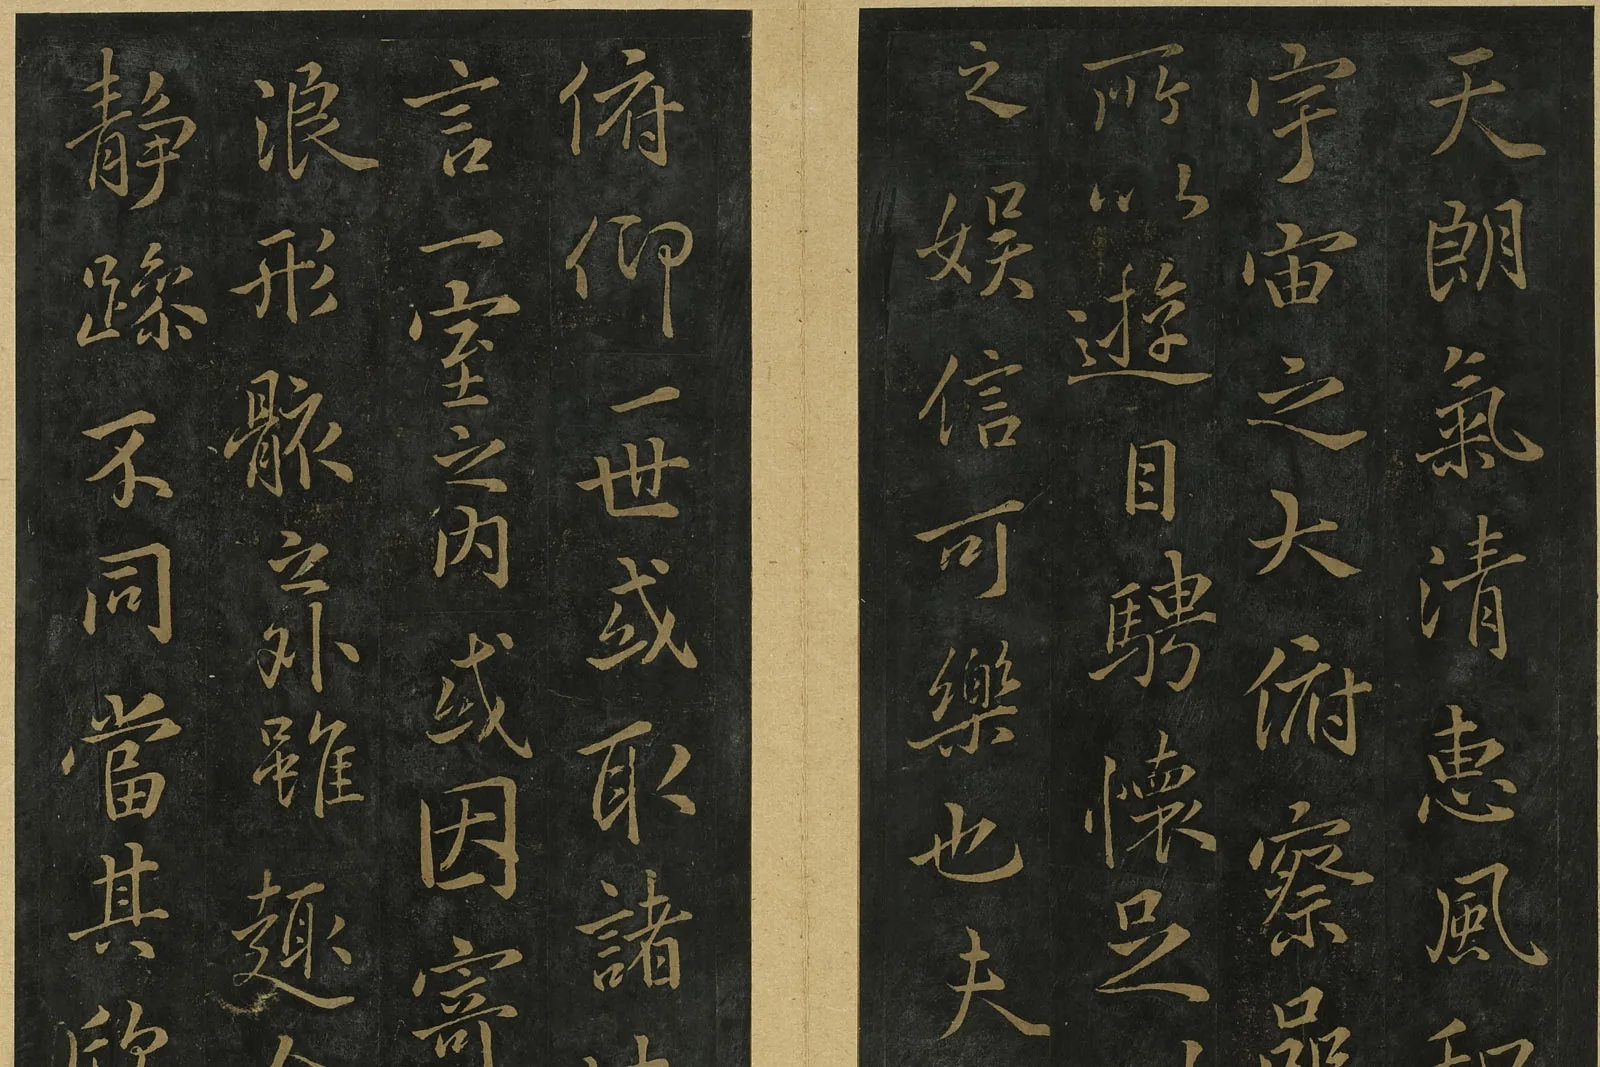 天朗氣清惠風和
宇宙之大俯察品
所以遊目騁懷足以
之娛信可樂也夫
俯仰一世或取諸
言一室之內或因寄
浪形骸之外雖趣
静躁不同當其欣